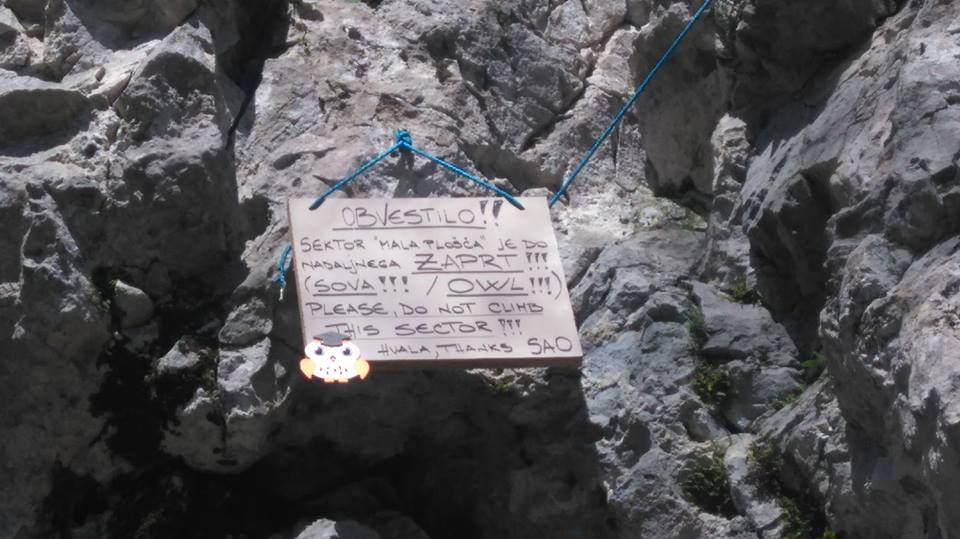 OBVESTILO!!
SEKTOR "MALA PLOŠČA" JE DO
NADALJNEGA ZAPRT!!!
(SOVA!!! / OWL!!!)
PLEASE, DO NOT CLIMB
THIS SECTOR!!!
HVALA, THANKS SAO